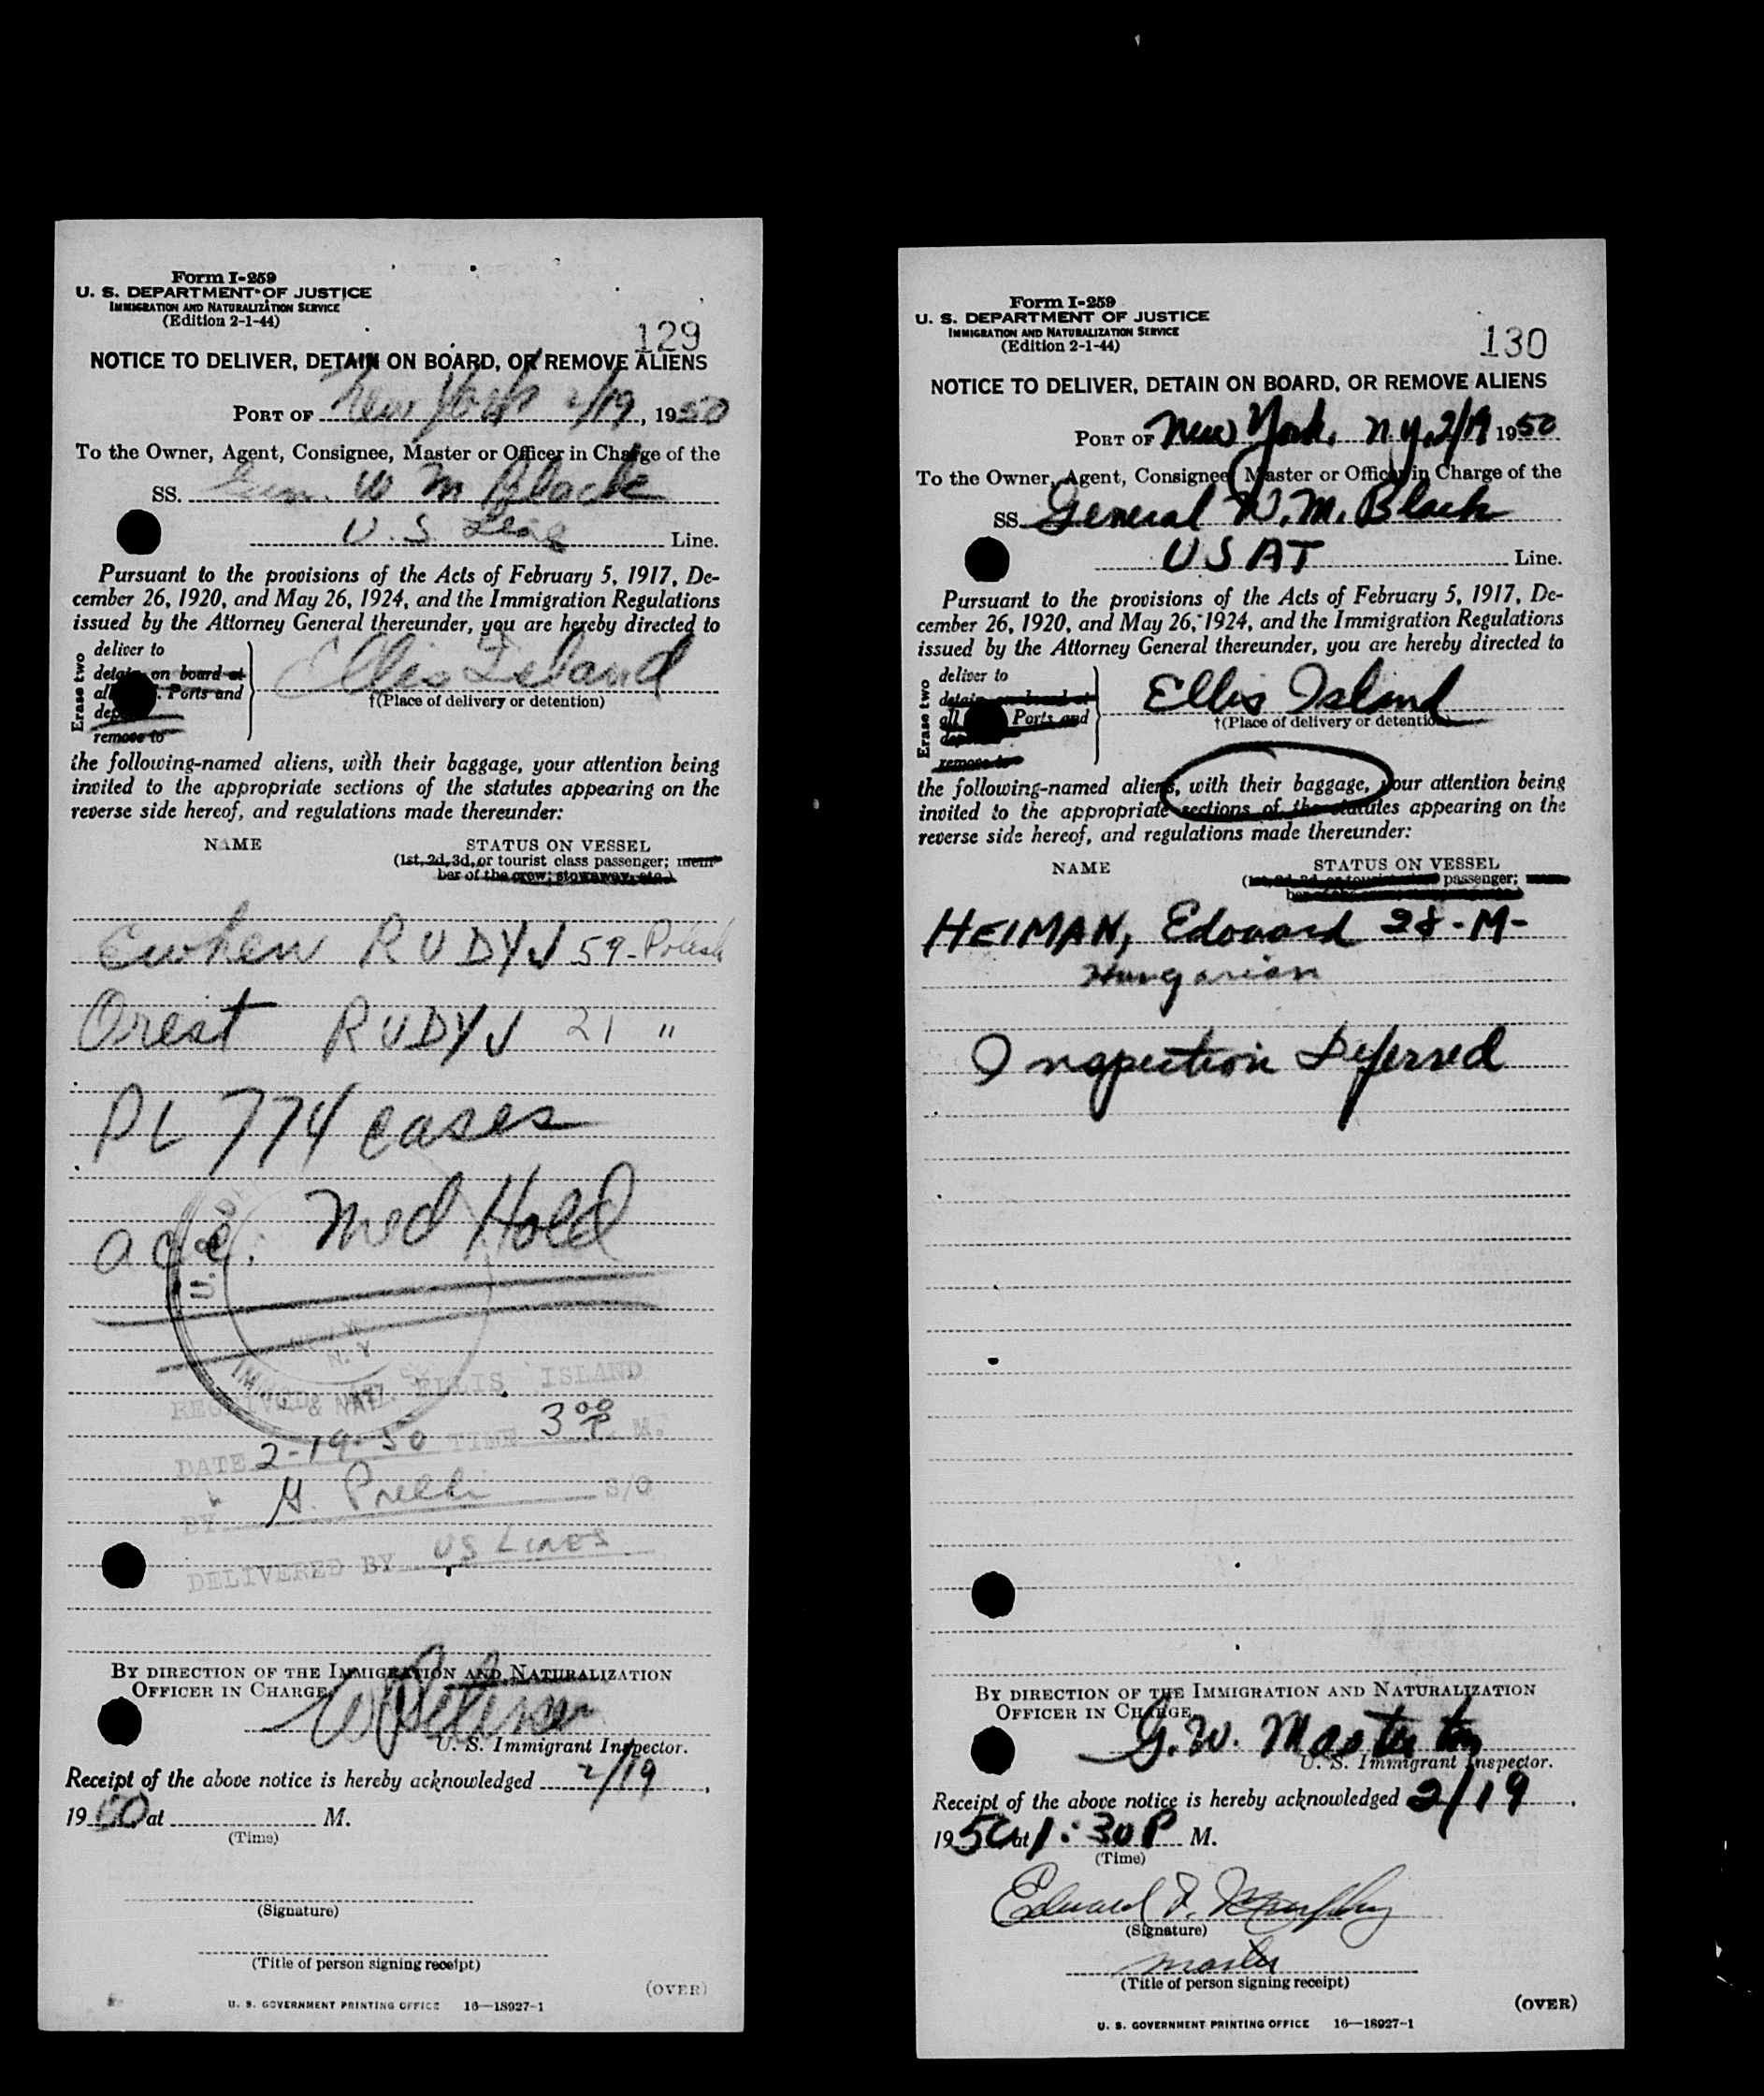 Form I-259
U. S. DEPARTMENT OF JUSTICE
IMMIGRATION AND NATURALIZATION SERVICE
(Edition 2-1-44)
129
NOTICE TO DELIVER, DETAIN ON BOARD, OR REMOVE ALIENS
PORT OF New York 2/19, 1950
To the Owner, Agent, Consignee, Master or Officer in Charge of the
SS. Gen. W M Black
U.S. Line.
Pursuant to the provisions of the Acts of February 5, 1917, De-
cember 26, 1920, and May 26, 1924, and the Immigration Regulations
issued by the Attorney General thereunder, you are hereby directed to
Erase two
deliver to
detain on board at
all Ports and
remove to
Ellis Island
†(Place of delivery or detention)
the following-named aliens, with their baggage, your attention being
invited to the appropriate sections of the statutes appearing on the
reverse side hereof, and regulations made thereunder:
NAME STATUS ON VESSEL
(1st, 2d, 3d, or tourist class passenger; mem-
ber of the crew; stowaway, etc.)
RUDYJ 59-Polish
Orest RUDYJ 21 "
PL 774 cases
Med Hold
U.S.
N. Y.
IMMIG. & NAT.
RECEIVED ELLIS ISLAND
DATE 2-19-50 TIME 3 00 P. M.
BY S/O
DELIVERED BY US LINES
BY DIRECTION OF THE IMMIGRATION AND NATURALIZATION
OFFICER IN CHARGE
U. S. Immigrant Inspector.
Receipt of the above notice is hereby acknowledged 2/19,
1950 at M.
(Time)
(Signature)
(Title of person signing receipt)
(OVER)
U. S. GOVERNMENT PRINTING OFFICE 16—18927-1
Form I-259
U. S. DEPARTMENT OF JUSTICE
IMMIGRATION AND NATURALIZATION SERVICE
(Edition 2-1-44)
130
NOTICE TO DELIVER, DETAIN ON BOARD, OR REMOVE ALIENS
PORT OF New York, N.Y. 2/19 1950
To the Owner, Agent, Consignee, Master or Officer in Charge of the
SS. General W. M. Black
USAT Line.
Pursuant to the provisions of the Acts of February 5, 1917, De-
cember 26, 1920, and May 26, 1924, and the Immigration Regulations
issued by the Attorney General thereunder, you are hereby directed to
Erase two
deliver to
detain on board at
all Ports and
remove to
Ellis Island
†(Place of delivery or detention)
the following-named aliens, with their baggage, your attention being
invited to the appropriate sections of the statutes appearing on the
reverse side hereof, and regulations made thereunder:
NAME STATUS ON VESSEL
passenger;
HEIMAN, Edouard 28-M-
Hungarian
Inspection Deferred
BY DIRECTION OF THE IMMIGRATION AND NATURALIZATION
OFFICER IN CHARGE
G. W. Masterton
U. S. Immigrant Inspector.
Receipt of the above notice is hereby acknowledged 2/19,
1950 at 1:30 P M.
(Time)
Edward F. Murphy
(Signature)
master
(Title of person signing receipt)
(OVER)
U. S. GOVERNMENT PRINTING OFFICE 16—18927-1